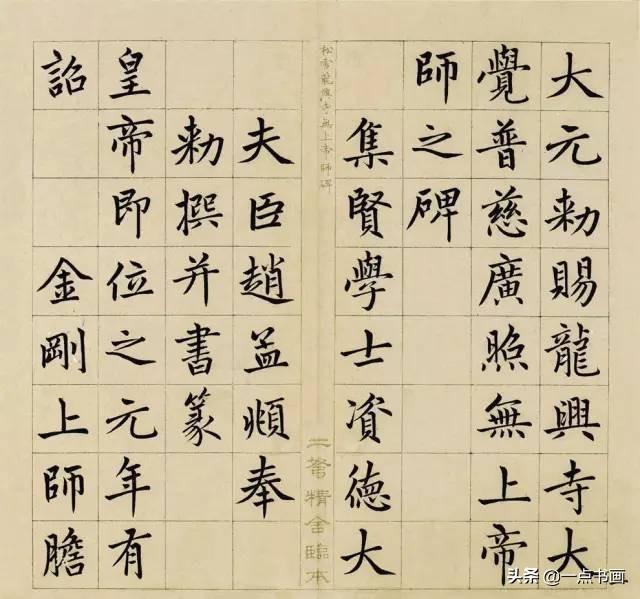 大元勅賜龍興寺大
覺普慈廣照無上帝
師之碑
集賢學士資德大
松雪龍興寺無上帝師碑
二弩精舍臨本
夫臣趙孟頫奉
勅撰并書篆
皇帝即位之元年有
詔 金剛上師膽
头条 @一点书画